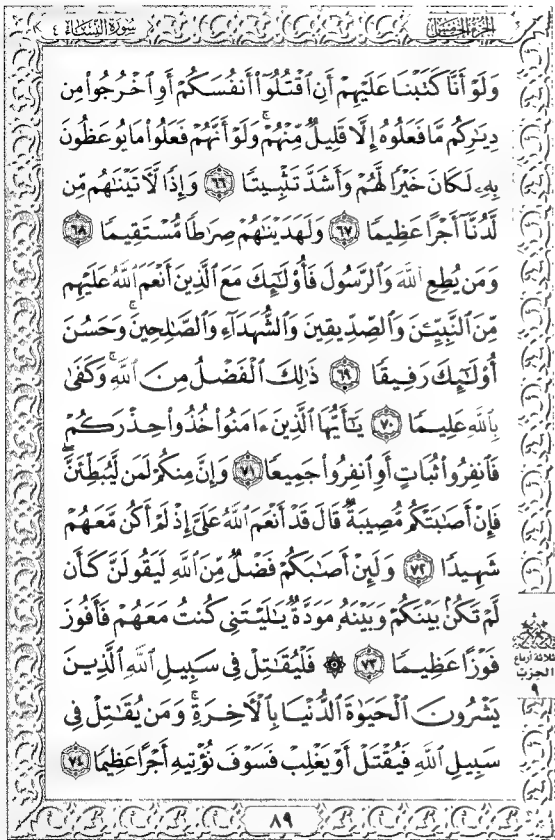 سورة النساء ٤
الجزء الخامس
وَلَوْ أَنَّا كَتَبْنَا عَلَيْهِمْ أَنِ ٱقْتُلُوٓا۟ أَنفُسَكُمْ أَوِ ٱخْرُجُوا۟ مِن
دِيَـٰرِكُم مَّا فَعَلُوهُ إِلَّا قَلِيلٌ مِّنْهُمْ ۖ وَلَوْ أَنَّهُمْ فَعَلُوا۟ مَا يُوعَظُونَ
بِهِۦ لَكَانَ خَيْرًا لَّهُمْ وَأَشَدَّ تَثْبِيتًا ٦٦ وَإِذًا لَّـَٔاتَيْنَـٰهُم مِّن
لَّدُنَّآ أَجْرًا عَظِيمًا ٦٧ وَلَهَدَيْنَـٰهُمْ صِرَٰطًا مُّسْتَقِيمًا ٦٨
وَمَن يُطِعِ ٱللَّهَ وَٱلرَّسُولَ فَأُو۟لَـٰٓئِكَ مَعَ ٱلَّذِينَ أَنْعَمَ ٱللَّهُ عَلَيْهِم
مِّنَ ٱلنَّبِيِّـۧنَ وَٱلصِّدِّيقِينَ وَٱلشُّهَدَآءِ وَٱلصَّـٰلِحِينَ ۚ وَحَسُنَ
أُو۟لَـٰٓئِكَ رَفِيقًا ٦٩ ذَٰلِكَ ٱلْفَضْلُ مِنَ ٱللَّهِ ۚ وَكَفَىٰ
بِٱللَّهِ عَلِيمًا ٧٠ يَـٰٓأَيُّهَا ٱلَّذِينَ ءَامَنُوا۟ خُذُوا۟ حِذْرَكُمْ
فَٱنفِرُوا۟ ثُبَاتٍ أَوِ ٱنفِرُوا۟ جَمِيعًا ٧١ وَإِنَّ مِنكُمْ لَمَن لَّيُبَطِّئَنَّ ۖ
فَإِنْ أَصَـٰبَتْكُم مُّصِيبَةٌ قَالَ قَدْ أَنْعَمَ ٱللَّهُ عَلَىَّ إِذْ لَمْ أَكُن مَّعَهُمْ
شَهِيدًا ٧٢ وَلَئِنْ أَصَـٰبَكُمْ فَضْلٌ مِّنَ ٱللَّهِ لَيَقُولَنَّ كَأَن
لَّمْ تَكُنۢ بَيْنَكُمْ وَبَيْنَهُۥ مَوَدَّةٌ يَـٰلَيْتَنِى كُنتُ مَعَهُمْ فَأَفُوزَ
فَوْزًا عَظِيمًا ٧٣ ۞ فَلْيُقَـٰتِلْ فِى سَبِيلِ ٱللَّهِ ٱلَّذِينَ
يَشْرُونَ ٱلْحَيَوٰةَ ٱلدُّنْيَا بِٱلْـَٔاخِرَةِ ۚ وَمَن يُقَـٰتِلْ فِى
سَبِيلِ ٱللَّهِ فَيُقْتَلْ أَوْ يَغْلِبْ فَسَوْفَ نُؤْتِيهِ أَجْرًا عَظِيمًا ٧٤
ثلاثة أرباع
الحزب
٩
٨٩